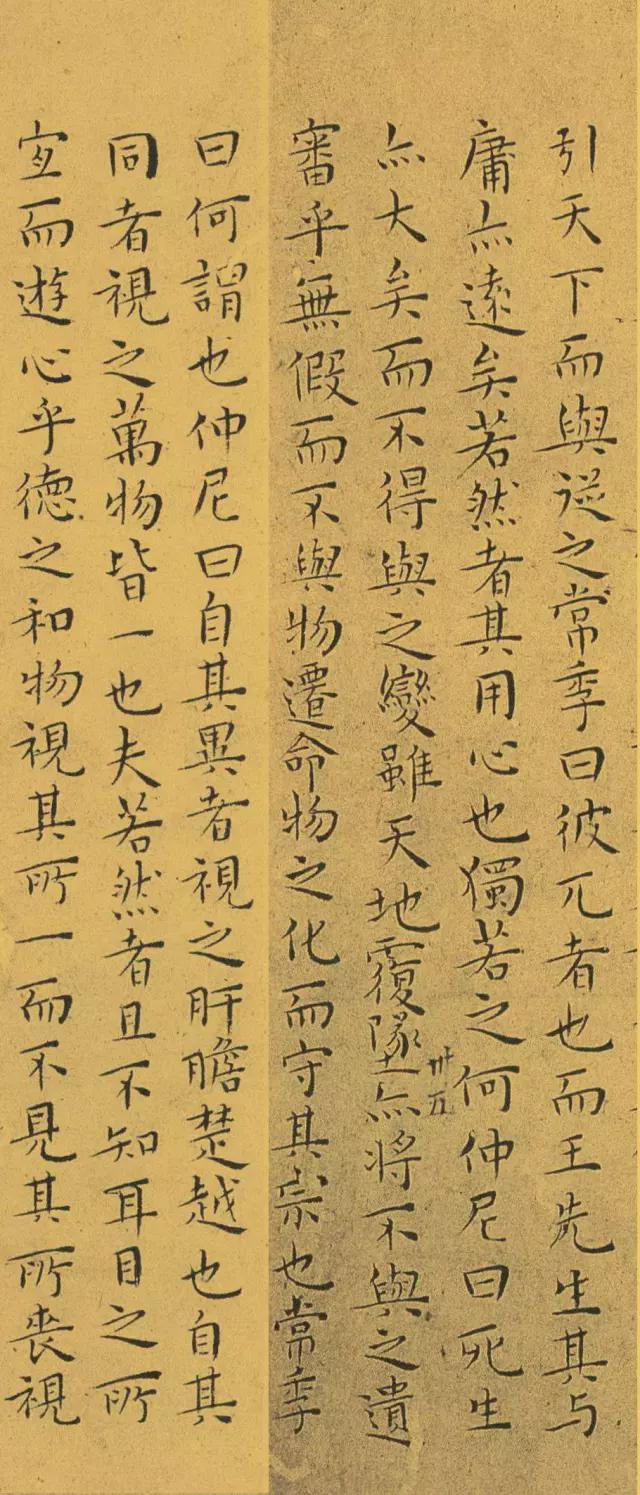 引天下而與從之常季曰彼兀者也而王先生其与
庸亦遠矣若然者其用心也獨若之何仲尼曰死生
亦大矣而不得與之變雖天地覆墜亦將不與之遺
卅五
審乎無假而不與物遷命物之化而守其宗也常季
曰何謂也仲尼曰自其異者視之肝膽楚越也自其
同者視之萬物皆一也夫若然者且不知耳目之所
宜而遊心乎德之和物視其所一而不見其所喪視